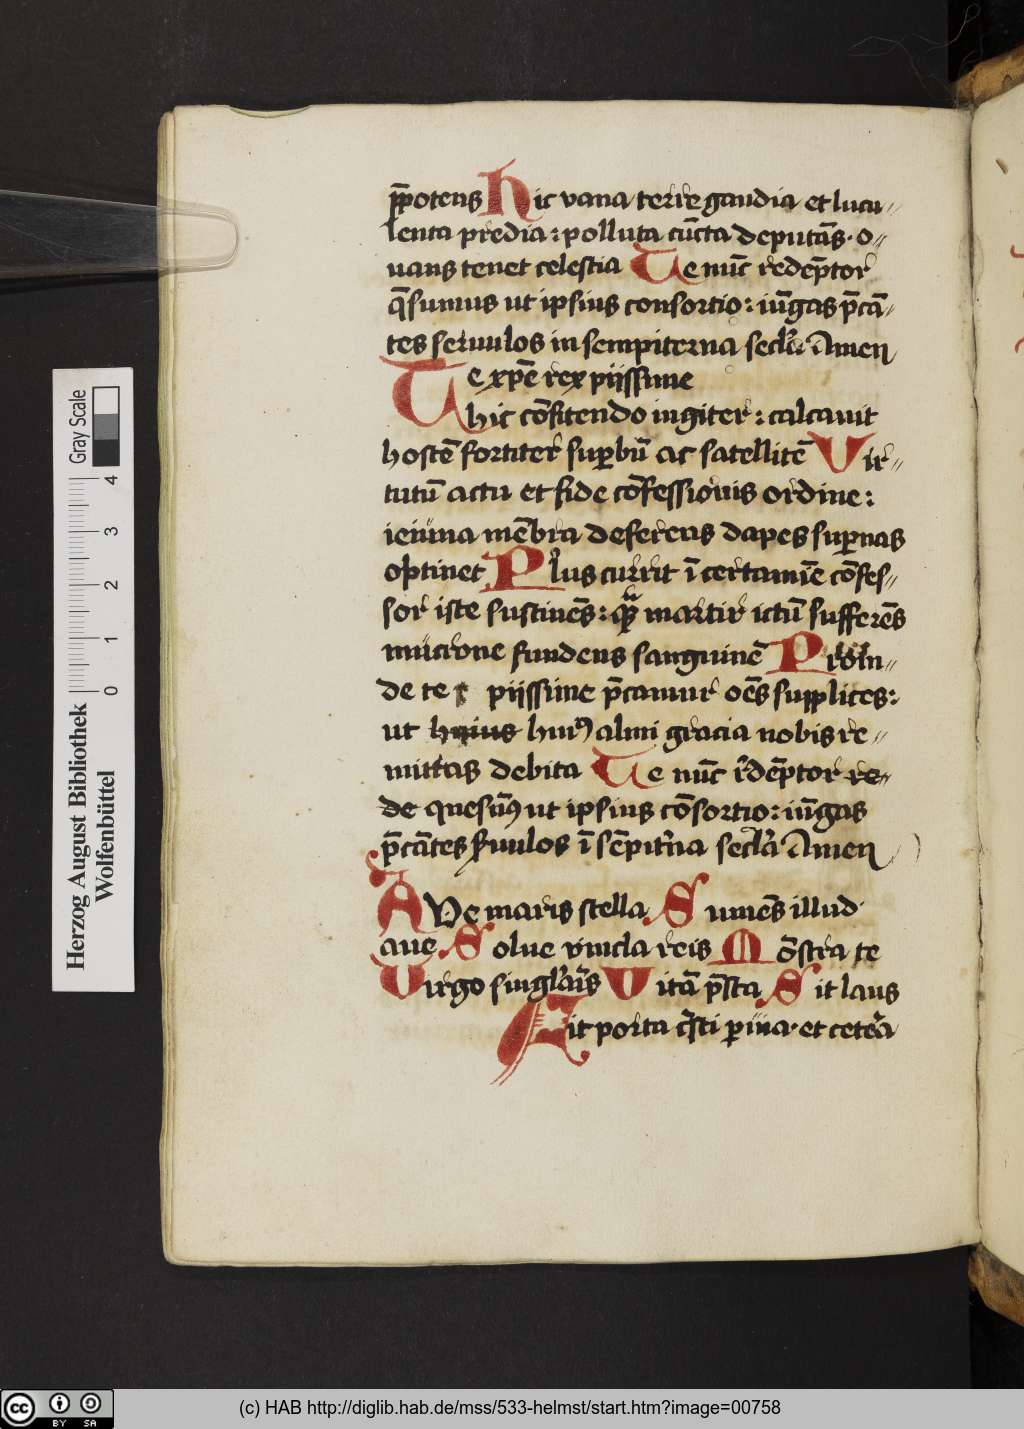 p̄potens hic vana terre gaudia et lucu⸗
lenta predia : polluta cūcta deputās · o⸗
uans tenet celestia Te nūc redēptor
q̄sumus ut ipsius consortio : iūgas p̄cā⸗
tes seruulos in sempiterna secl'a Amen
Te xpē rex pijssime
hic cōfitendo iugiter : calcauit
hostē fortiter suꝑbū ac satellitē Vir⸗
tutū actu et fide cōfessionis ordine :
ieiuna mēbra deferens dapes suꝑnas
optinet Plus currit ī certamīe cōfes⸗
sor iste sustinēs : qᷓꝫ martir ictū sufferēs
mucrone fundens sanguinē Proin⸗
de te pijssime p̄camur oēs supplices :
ut huius huiꝰ almi gracia nobis re⸗
mittas debita Te nūc rēdēptor re⸗
de quesumꝰ ut ipsius cōsortio : iūgas
p̄cātes s̄uulos ī sēpit'na secl'a Amen
AVe maris stella Sumēs illud
aue Solue vincla reis Mōstra te
Virgo singl'aris Vitā p̄sta Sit laus
Fit porta cristi ꝑuia · et cetera
Herzog August Bibliothek
Wolfenbüttel
0 1 2 3 4
Gray Scale
cc BY SA
(c) HAB http://diglib.hab.de/mss/533-helmst/start.htm?image=00758